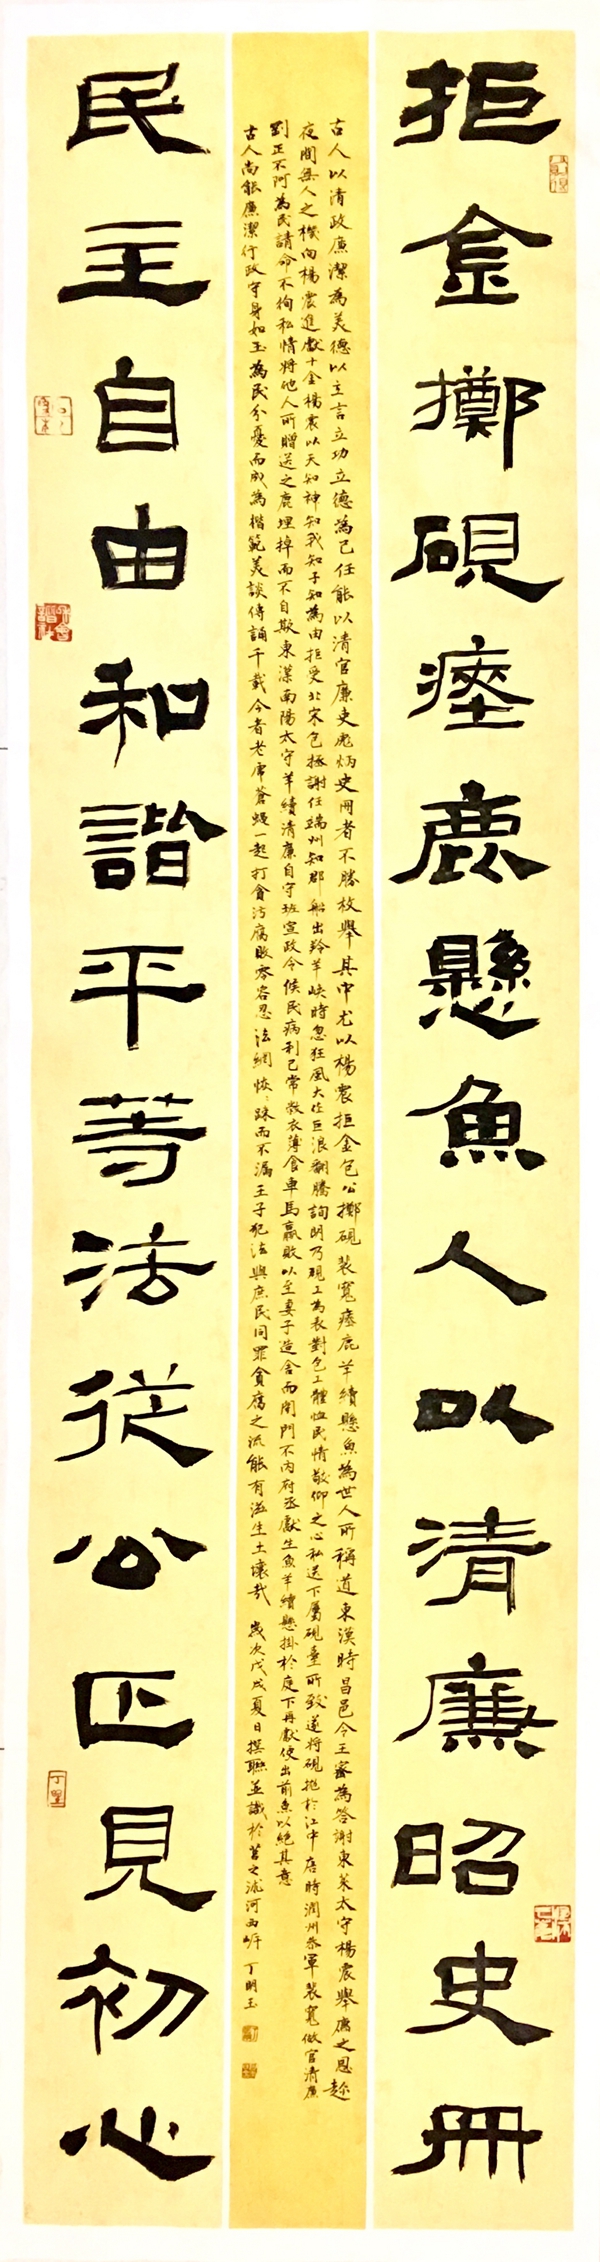 拒金擲硯瘞鹿懸魚人以清廉昭史冊
古人以清政廉潔為美德以立言立功立德為己任能以清官廉吏彪炳史冊者不勝枚舉其中尤以楊震拒金包公擲硯裴寬瘞鹿羊續懸魚為世人所稱道東漢時昌邑令王密為答謝東萊太守楊震舉薦之恩趁
夜間無人之機向楊震進獻十金楊震以天知神知我知子知為由拒受北宋包拯謝任端州知郡船出羚羊峽時忽狂風大作巨浪翻騰詢明乃硯工為表對包工體恤民情敬仰之心私送下屬硯臺所致遂將硯拋於江中唐時潤州參軍裴寬做官清廉
剛正不阿為民請命不徇私情將他人所贈送之鹿埋掉而不自欺東漢南陽太守羊續清廉自守班宣政令候民病利己常敝衣薄食車馬羸敗以至妻子造舍而閉門不內府丞獻生魚羊續懸掛於庭下再獻使出前魚以絕其意
古人尚能廉潔行政守身如玉為民分憂而成為楷範美談傳誦千載今者老虎蒼蠅一起打貪污腐敗零容忍法網恢〻踈而不漏王子犯法與庶民同罪貪腐之流能有滋生土壤哉 歲次戊戌夏日撰聯並識於苕之流河西岸 丁明玉
民主自由和諧平等法從公正見初心